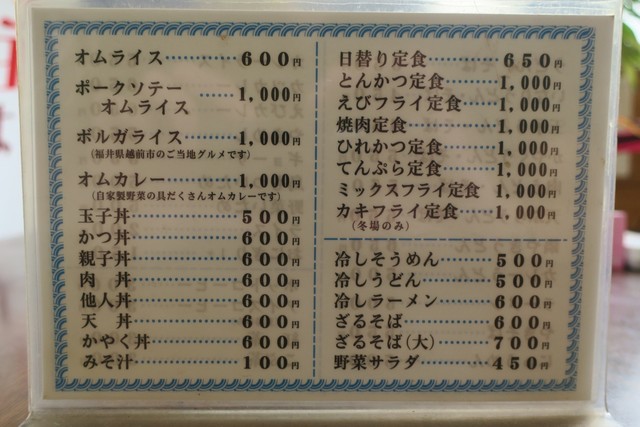 オムライス………600円
ポークソテー
オムライス……1,000円
ボルガライス……1,000円
(福井県越前市のご当地グルメです)
オムカレー………1,000円
(自家製野菜の具だくさんオムカレーです)
玉子丼………500円
かつ丼………600円
親子丼………600円
肉　丼………600円
他人丼………600円
天　丼………600円
かやく丼………600円
みそ汁………100円
日替り定食………650円
とんかつ定食……1,000円
えびフライ定食…1,000円
焼肉定食………1,000円
ひれかつ定食……1,000円
てんぷら定食……1,000円
ミックスフライ定食 1,000円
カキフライ定食…1,000円
(冬場のみ)
冷しそうめん……500円
冷しうどん………500円
冷しラーメン……600円
ざるそば………600円
ざるそば(大)……700円
野菜サラダ………450円